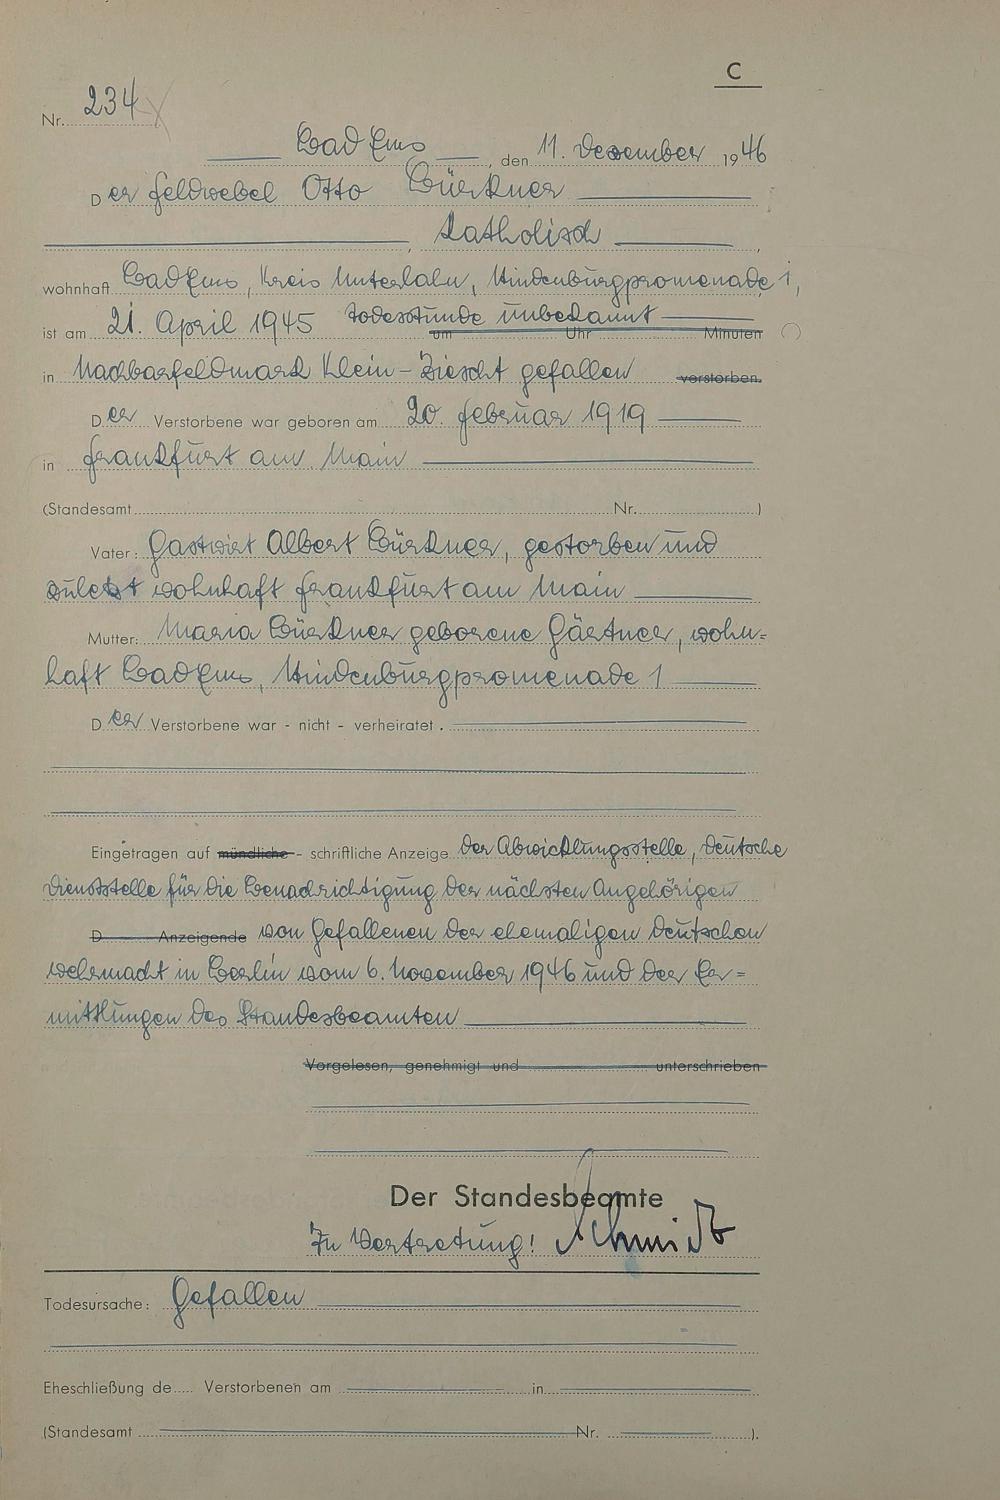 C
Nr. 234
Bad Ems, den 11. Dezember 1946
Der Feldwebel Otto Bürkner
, katholisch,
wohnhaft Bad Ems, Kreis Unterlahn, Hindenburgpromenade 1,
ist am 21. April 1945 Todesstunde unbekannt um Uhr Minuten
in Nachbarfeldmark Klein-Ziescht gefallen verstorben.
Der Verstorbene war geboren am 20. Februar 1919
in Frankfurt am Main
(Standesamt Nr. )
Vater: Gastwirt Albert Bürkner, gestorben und
zuletzt wohnhaft Frankfurt am Main
Mutter: Maria Bürkner geborene Gärtner, wohn-
haft Bad Ems, Hindenburgpromenade 1
Der Verstorbene war - nicht - verheiratet.
Eingetragen auf mündliche - schriftliche Anzeige der Abwicklungsstelle, Deutsche
Dienststelle für die Benachrichtigung der nächsten Angehörigen
D Anzeigende von Gefallenen der ehemaligen deutschen
Wehrmacht in Berlin vom 6. November 1946 und der Er=
mittlungen des Standesbeamten
Vorgelesen, genehmigt und unterschrieben
Der Standesbeamte
In Vertretung! Schmidt
Todesursache: Gefallen
Eheschließung de Verstorbenen am in
(Standesamt Nr. ).